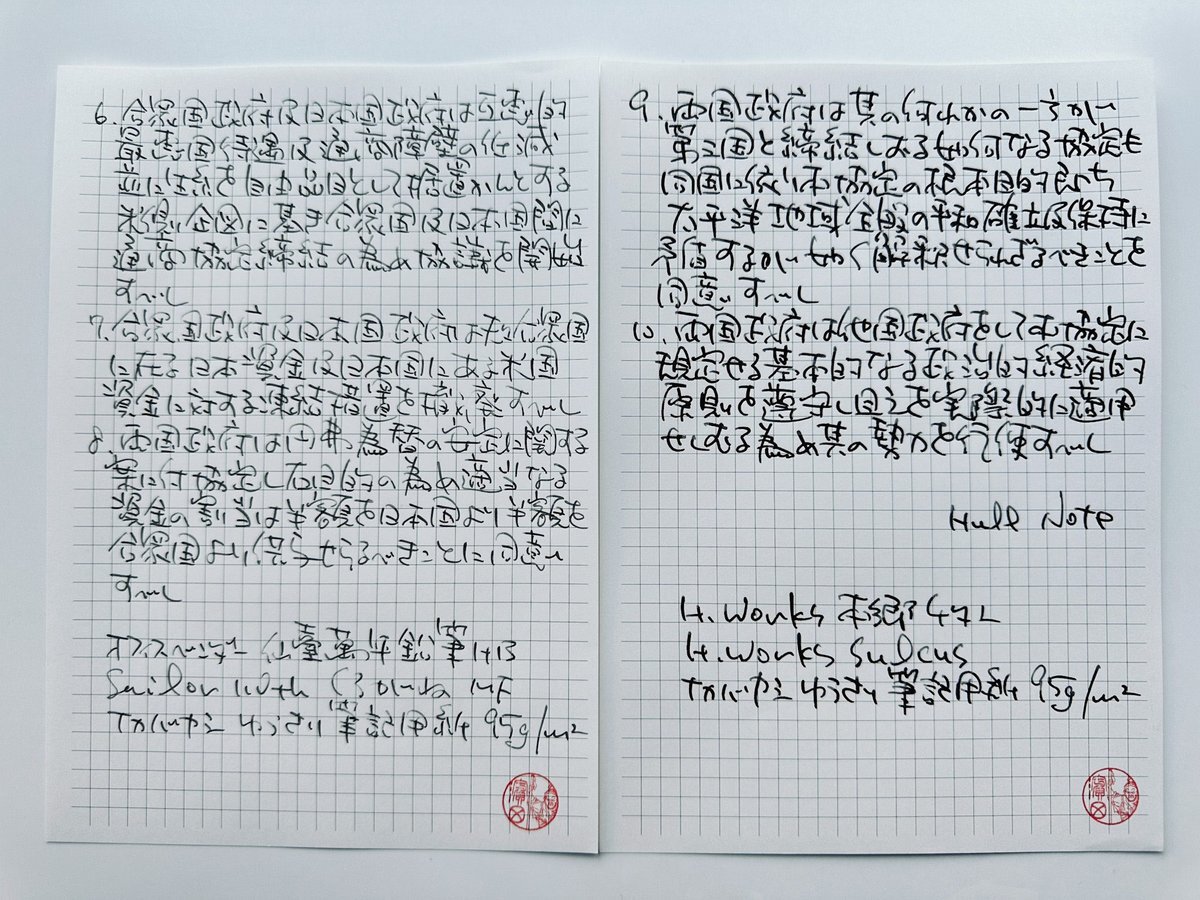 6. 合衆国政府及日本国政府は互恵的
最恵国待遇及通商障壁の低減
並に生糸を自由品目として据置かんとする
米側企図に基き合衆国及日本国間に
通商協定締結の為め協議を開始
すべし
7. 合衆国政府及日本国政府は夫々合衆国
に在る日本資金及日本国にある米国
資金に対する凍結措置を撤廃すべし
8. 両国政府は円弗為替の安定に関する
案に付協定し右目的の為め適当なる
資金の割当は半額を日本国より半額を
合衆国より供与せらるべきことに同意
すべし
オフィスベンダー 仙臺萬年鉛筆HB
Sailor
筆記用紙 95g/m²
9. 両国政府は其の何れかの一方が
第三国と締結しおる如何なる協定も
同国に依り本協定の根本目的即ち
太平洋地域全般の平和確立及保持に
矛盾するが如く解釈せられざるべきことを
同意すべし
10. 両国政府は他国政府をして本協定に
規定せる基本的なる政治的経済的
原則を遵守し且之を実際的に適用
せしむる為め其の勢力を行使すべし
Hull Note
H.Works 本郷
H.Works Sulcus
筆記用紙 95g/m²